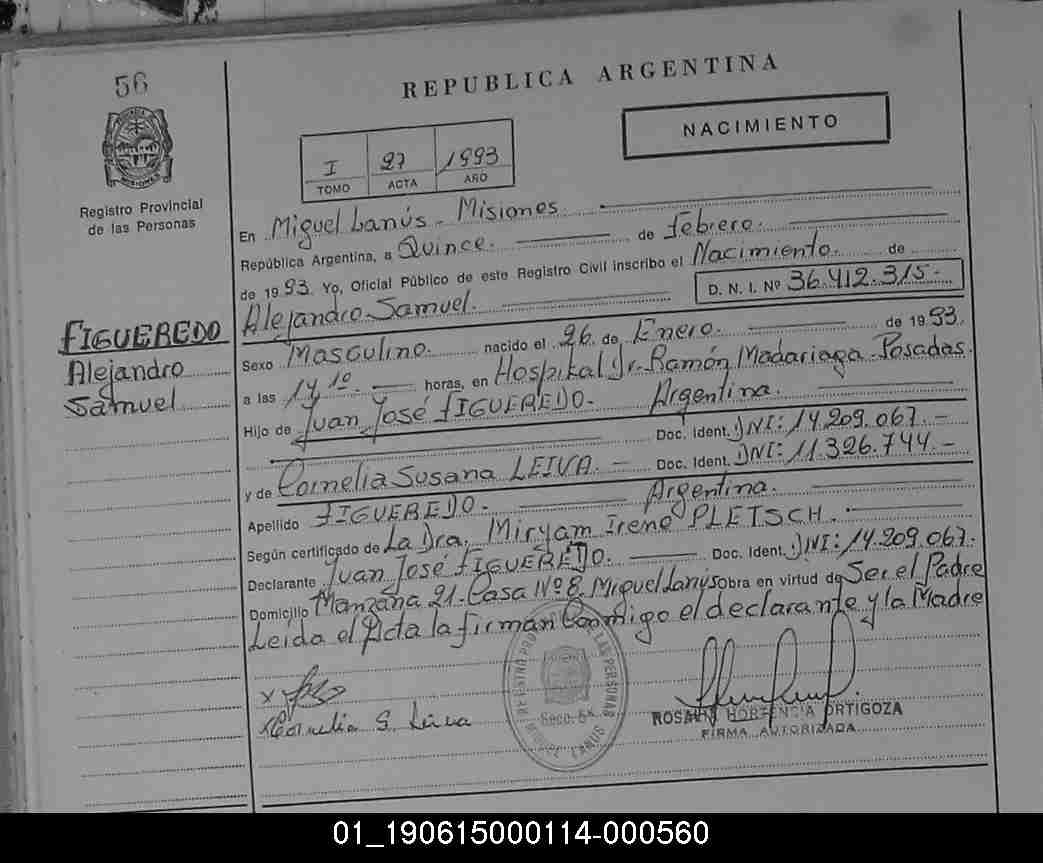 56
REPUBLICA ARGENTINA
NACIMIENTO
I 27 1993
TOMO ACTA AÑO
Registro Provincial
de las Personas
En Miguel Lanús - Misiones
República Argentina, a Quince. de Febrero.
de 1993. Yo, Oficial Público de este Registro Civil inscribo el Nacimiento de
Alejandro Samuel. D. N. I. Nº 36.412.315-
FIGUEREDO
Alejandro
Samuel
Sexo Masculino. nacido el 26 de Enero. de 1993.
a las 14,10 horas, en Hospital Dr. Ramón Madariaga - Posadas.
Hijo de Juan José FIGUEREDO. Argentina.
Doc. Ident. DNI: 14.209.067. -
y de Cornelia Susana LEIVA. - Doc. Ident. DNI: 11.326.744. -
Argentina.
Apellido FIGUEREDO.
Según certificado de La Dra. Miryam Irene PLETSCH.
Declarante Juan José FIGUEREDO. Doc. Ident. DNI: 14.209.067.
Domicilio Manzana 21 - Casa Nº 8. Miguel Lanús obra en virtud de Ser el Padre
Leída el Acta la firman Conmigo el declarante y la Madre
Cornelia S. Leiva
REGISTRO PROVINCIAL DE LAS PERSONAS
MIGUEL LANUS
ROSANA HORTENCIA ORTIGOZA
FIRMA AUTORIZADA
01_190615000114-000560